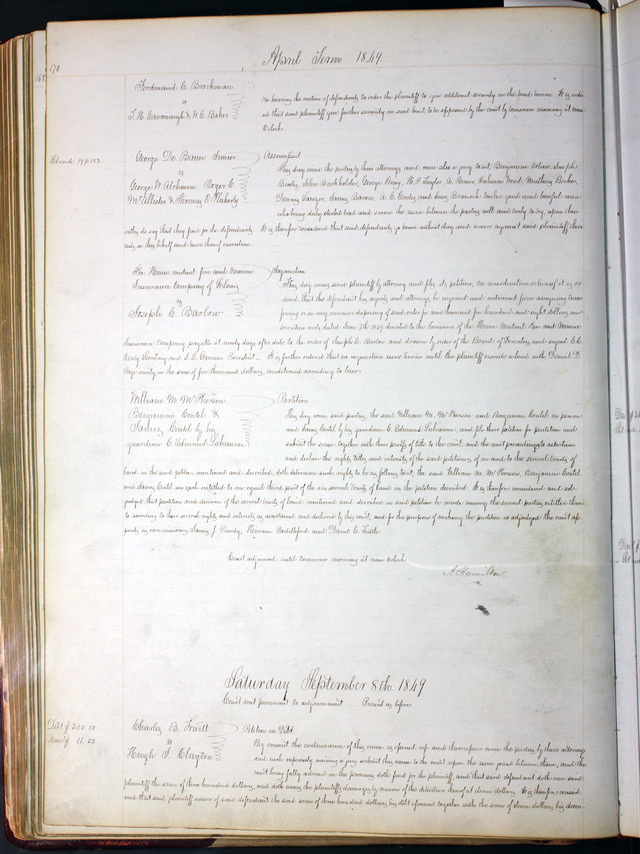 170
April Term 1849.
Ferdinand C. Brockman
vs
T. H. Cavanaugh & W. C. Baker
On hearing the motion of defendants to order the plaintiff to give additional security on the bond herein. It is order
ed that said plaintiff give further security on said bond to be approved by the court by tomorrow morning at nine
O'clock.
George De Baun Junior
vs
George W. Atchison, Roger C.
McAllister & Thomas O'Flaherty
Assumpsit
This day come the parties by their attorneys and come also a jury to wit, Benjamin Joseph
John Burkholder, George Henry, H. P. Taylor,
twelve good and lawful men
who being duly elected tried and sworn the issue between the parties well and truly to try, upon their
oaths do say that they find for the defendants. It is therefore considered that said defendants go hence without day and recover against said plaintiff their
costs in this behalf and have thereof execution.
The Home mutual fire and marine
Insurance Company of St Louis
vs
Joseph C. Barlow
Injunction
This day comes said plaintiff by attorney and files its petition, on consideration whereof it is or
dered that the defendant his agents and attorneys be enjoined and restrained from assigning trans
ferring or in any manner disposing of said order for one thousand four hundred and eight dollars and
seventeen cents dated June 7th 1849 directed to the Treasurer of the Home Mutual Fire and Marine
Insurance Company payable at ninety days after date to the order of Joseph C. Barlow and drawn by order of the Board of Directors and signed
Secretary and President. It is further ordered that no injunction issue herein until the plaintiff executes a bond with Daniel D.
Page surety in the sum of four thousand dollars, conditioned according to law.
William M. McPherson
Benjamin Contel &
Nancy Contel by her
guardian C. Edmund Salisaux.
Partition
This day come said parties, the said William M. McPherson and Benjamin Contel in person
and Nancy Contel by her guardian C. Edmund and file their petition for partition and
submit the same together with their proofs of title to the court, and the court proceeding to ascertain
and declare the rights, titles and interests of the said petitioners of in and to the several tracts of
land in the said petition mentioned and described, doth determine such rights to be as follows to wit, the said William M. McPherson, Benjamin Contel
and Nancy Contel are each entitled to one equal third part of the six several tracts of land in the petition described. It is therefore considered and ad
judged that partition and division of the several tracts of land mentioned and described in said petition be made among the several parties entitled there
to according to their several rights and interests as ascertained and declared by this court, and for the purpose of making the partition so adjudged the court ap
points as commissioners James J. Purdy, Hiram and Daniel C.
Court adjourned until tomorrow morning at nine O'clock
A. Hamilton
Saturday September 8th. 1849
Court met pursuant to adjournment Present as before
Debt $ 300.00
Dam's $ 11.00
Charles B. Truitt
vs
Hugh J. Clayton
Petition in Debt
By consent the continuance of this cause is opened up and thereupon come the parties by their attorneys
and each expressly waiving a jury submit this cause to the court upon the issue joined between them, and the
court being fully advised in the premises doth find for the plaintiff, and that said defendant doth owe said
plaintiff the sum of three hundred dollars, and doth assess the plaintiff's damages by reason of the detention thereof at eleven dollars. It is therefore consid
ered that said plaintiff recover of said defendant the said sum of three hundred dollars his debt aforesaid together with the sum of eleven dollars his dam